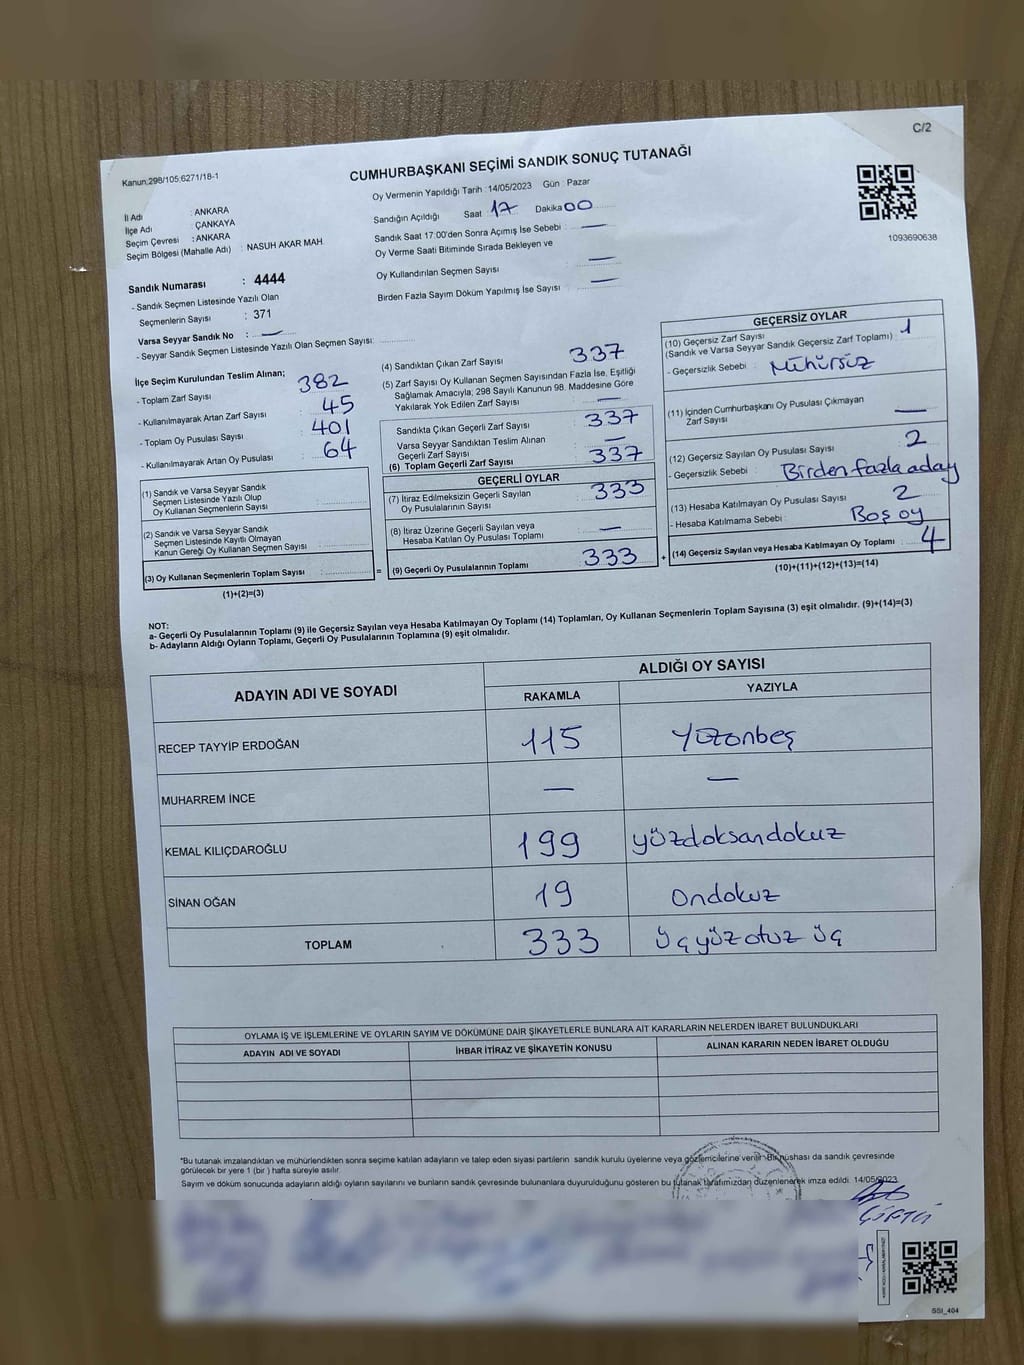 C/2
Kanun:298/105;6271/18-1
CUMHURBAŞKANI SEÇİMİ SANDIK SONUÇ TUTANAĞI
İl Adı : ANKARA
İlçe Adı : ÇANKAYA
Seçim Çevresi : ANKARA
Seçim Bölgesi (Mahalle Adı) : NASUH AKAR MAH.
Oy Vermenin Yapıldığı Tarih :14/05/2023 Gün : Pazar
Sandığın Açıldığı Saat : 17 Dakika 00
Sandık Saat 17:00'den Sonra Açımış İse Sebebi : —
Oy Verme Saati Bitiminde Sırada Bekleyen ve
Oy Kullandırılan Seçmen Sayısı : —
Birden Fazla Sayım Döküm Yapılmış İse Sayısı : —
1093690638
Sandık Numarası : 4444
- Sandık Seçmen Listesinde Yazılı Olan
Seçmenlerin Sayısı : 371
Varsa Seyyar Sandık No : —
- Seyyar Sandık Seçmen Listesinde Yazılı Olan Seçmen Sayısı:
İlçe Seçim Kurulundan Teslim Alınan;
- Toplam Zarf Sayısı : 382
- Kullanılmayarak Artan Zarf Sayısı : 45
- Toplam Oy Pusulası Sayısı : 401
- Kullanılmayarak Artan Oy Pusulası : 64
(1) Sandık ve Varsa Seyyar Sandık
Seçmen Listesinde Yazılı Olup
Oy Kullanan Seçmenlerin Sayısı :
(2) Sandık ve Varsa Seyyar Sandık
Seçmen Listesinde Kayıtlı Olmayan
Kanun Gereği Oy Kullanan Seçmen Sayısı :
(3) Oy Kullanan Seçmenlerin Toplam Sayısı :
(1)+(2)=(3)
(4) Sandıktan Çıkan Zarf Sayısı : 337
(5) Zarf Sayısı Oy Kullanan Seçmen Sayısından Fazla İse, Eşitliği
Sağlamak Amacıyla; 298 Sayılı Kanunun 98. Maddesine Göre
Yakılarak Yok Edilen Zarf Sayısı : —
Sandıkta Çıkan Geçerli Zarf Sayısı : 337
Varsa Seyyar Sandıktan Teslim Alınan
Geçerli Zarf Sayısı : —
(6) Toplam Geçerli Zarf Sayısı : 337
GEÇERLİ OYLAR
(7) İtiraz Edilmeksizin Geçerli Sayılan
Oy Pusulalarının Sayısı : 333
(8) İtiraz Üzerine Geçerli Sayılan veya
Hesaba Katılan Oy Pusulası Toplamı : —
= (9) Geçerli Oy Pusulalarının Toplamı : 333
+
GEÇERSİZ OYLAR
(10) Geçersiz Zarf Sayısı : 1
(Sandık ve Varsa Seyyar Sandık Geçersiz Zarf Toplamı)
- Geçersizlik Sebebi : Mühürsüz
(11) İçinden Cumhurbaşkanı Oy Pusulası Çıkmayan
Zarf Sayısı : —
(12) Geçersiz Sayılan Oy Pusulası Sayısı : 2
- Geçersizlik Sebebi : Birden fazla aday
(13) Hesaba Katılmayan Oy Pusulası Sayısı : 2
- Hesaba Katılmama Sebebi : Boş oy
(14) Geçersiz Sayılan veya Hesaba Katılmayan Oy Toplamı : 4
(10)+(11)+(12)+(13)=(14)
NOT:
a- Geçerli Oy Pusulalarının Toplamı (9) ile Geçersiz Sayılan veya Hesaba Katılmayan Oy Toplamı (14) Toplamları, Oy Kullanan Seçmenlerin Toplam Sayısına (3) eşit olmalıdır. (9)+(14)=(3)
b- Adayların Aldığı Oyların Toplamı, Geçerli Oy Pusulalarının Toplamına (9) eşit olmalıdır.
ADAYIN ADI VE SOYADI
ALDIĞI OY SAYISI
RAKAMLA YAZIYLA
RECEP TAYYİP ERDOĞAN 115 Yüzonbeş
MUHARREM İNCE — —
KEMAL KILIÇDAROĞLU 199 yüzdoksandokuz
SİNAN OĞAN 19 Ondokuz
TOPLAM 333 üçyüzotuz üç
OYLAMA İŞ VE İŞLEMLERİNE VE OYLARIN SAYIM VE DÖKÜMÜNE DAİR ŞİKAYETLERLE BUNLARA AİT KARARLARIN NELERDEN İBARET BULUNDUKLARI
ADAYIN ADI VE SOYADI İHBAR İTİRAZ VE ŞİKAYETİN KONUSU ALINAN KARARIN NEDEN İBARET OLDUĞU
*Bu tutanak imzalandıktan ve mühürlendikten sonra seçime katılan adayların ve talep eden siyasi partilerin sandık kurulu üyelerine veya gözlemcilerine verilir. Bir nüshası da sandık çevresinde
görülecek bir yere 1 (bir) hafta süreyle asılır.
Sayım ve döküm sonucunda adayların aldığı oyların sayılarını ve bunların sandık çevresinde bulunanlara duyurulduğunu gösteren bu tutanak tarafımızdan düzenlenerek imza edildi. 14/05/2023
SSI_404